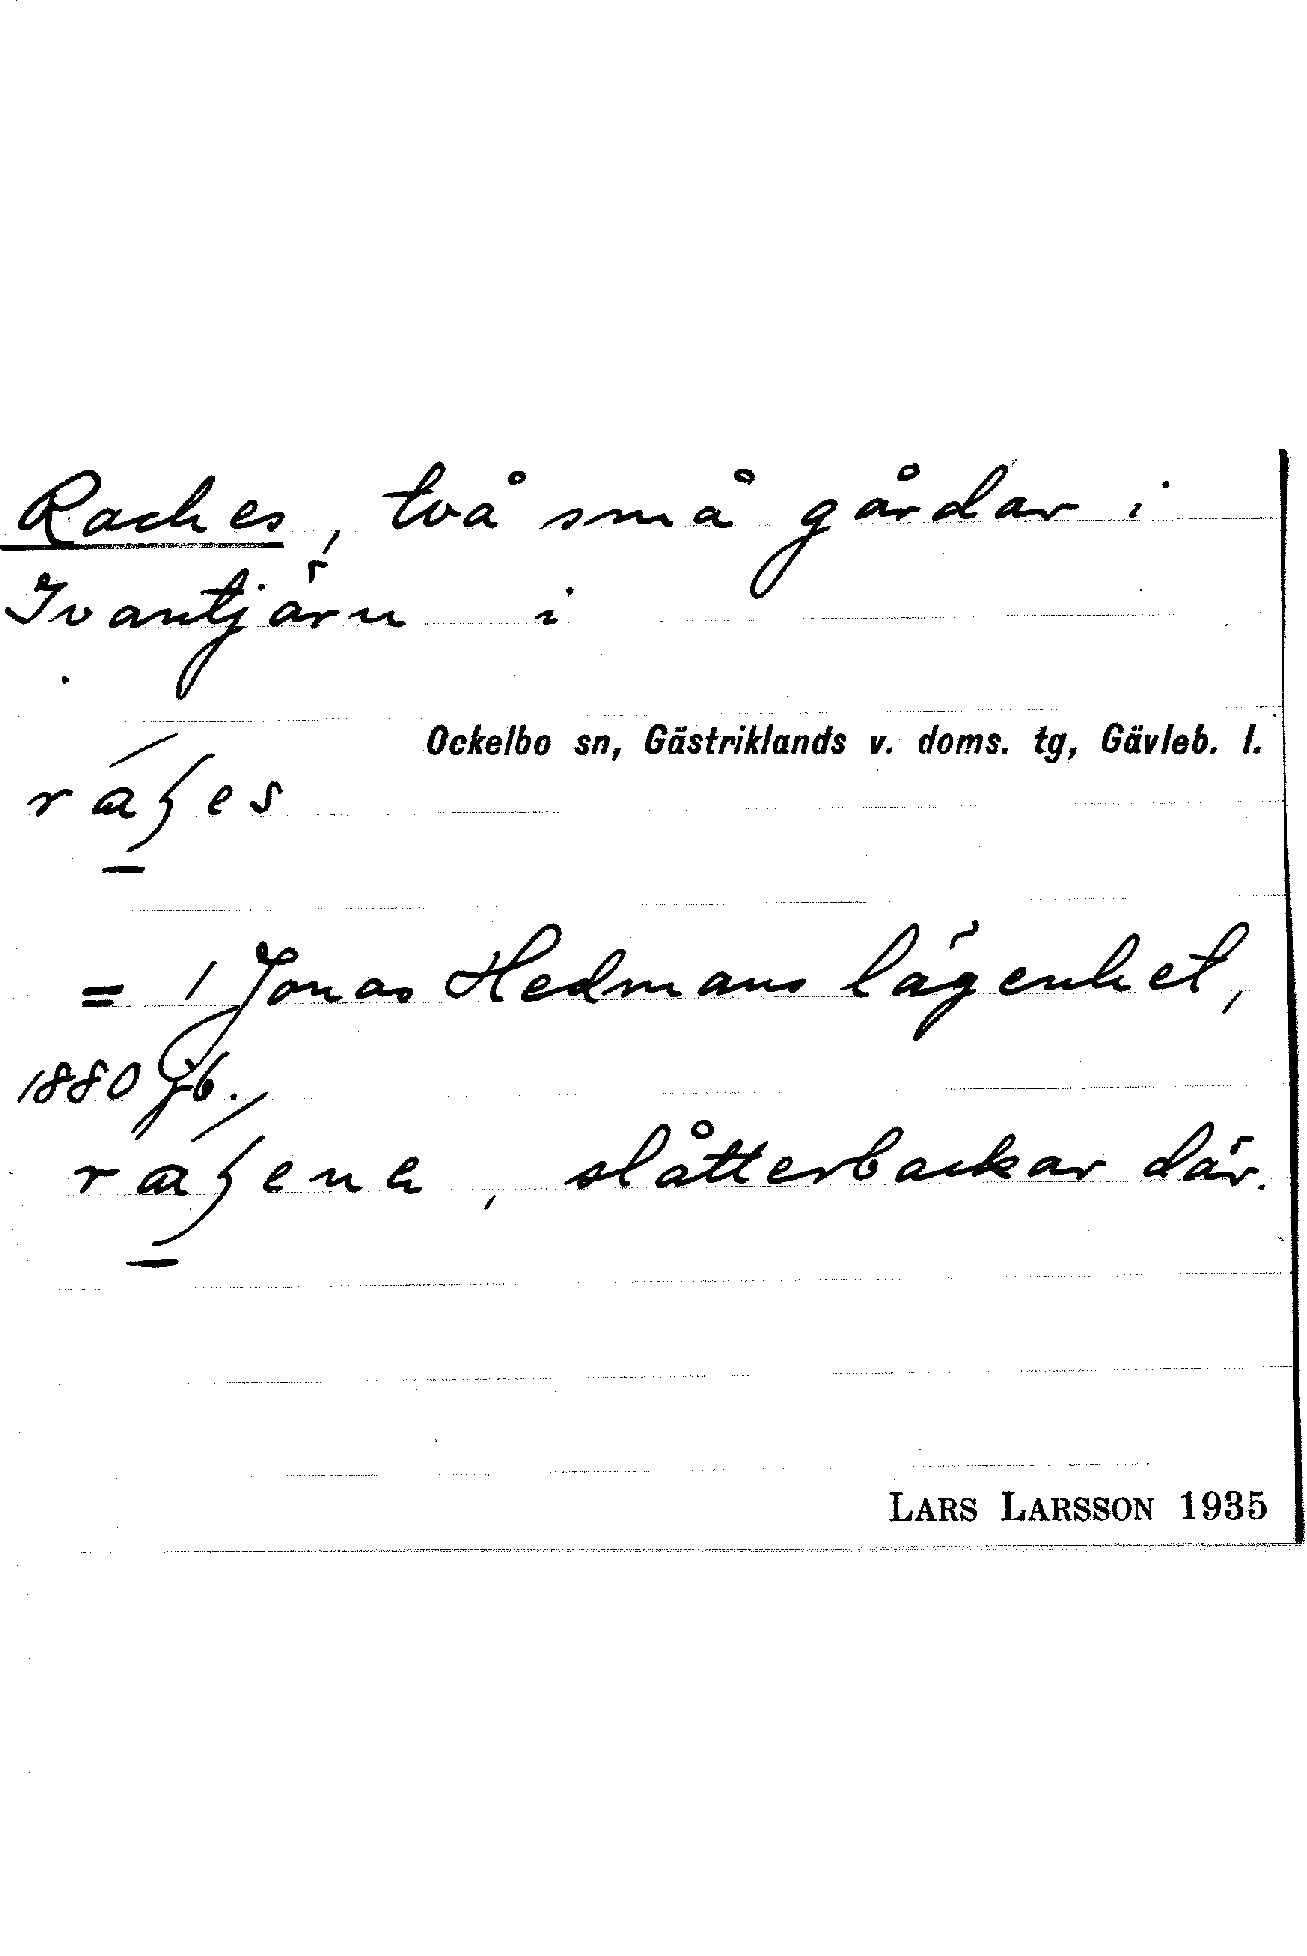 Raches, två små gårdar i
Ivantjärn i
Ockelbo sn, Gästriklands v. doms. tg, Gävleb. l.
ráʃes
= 1 Jonas Hedmans lägenhet,
1880 Jb.
ráʃena, slåtterbackar där.
LARS LARSSON 1935